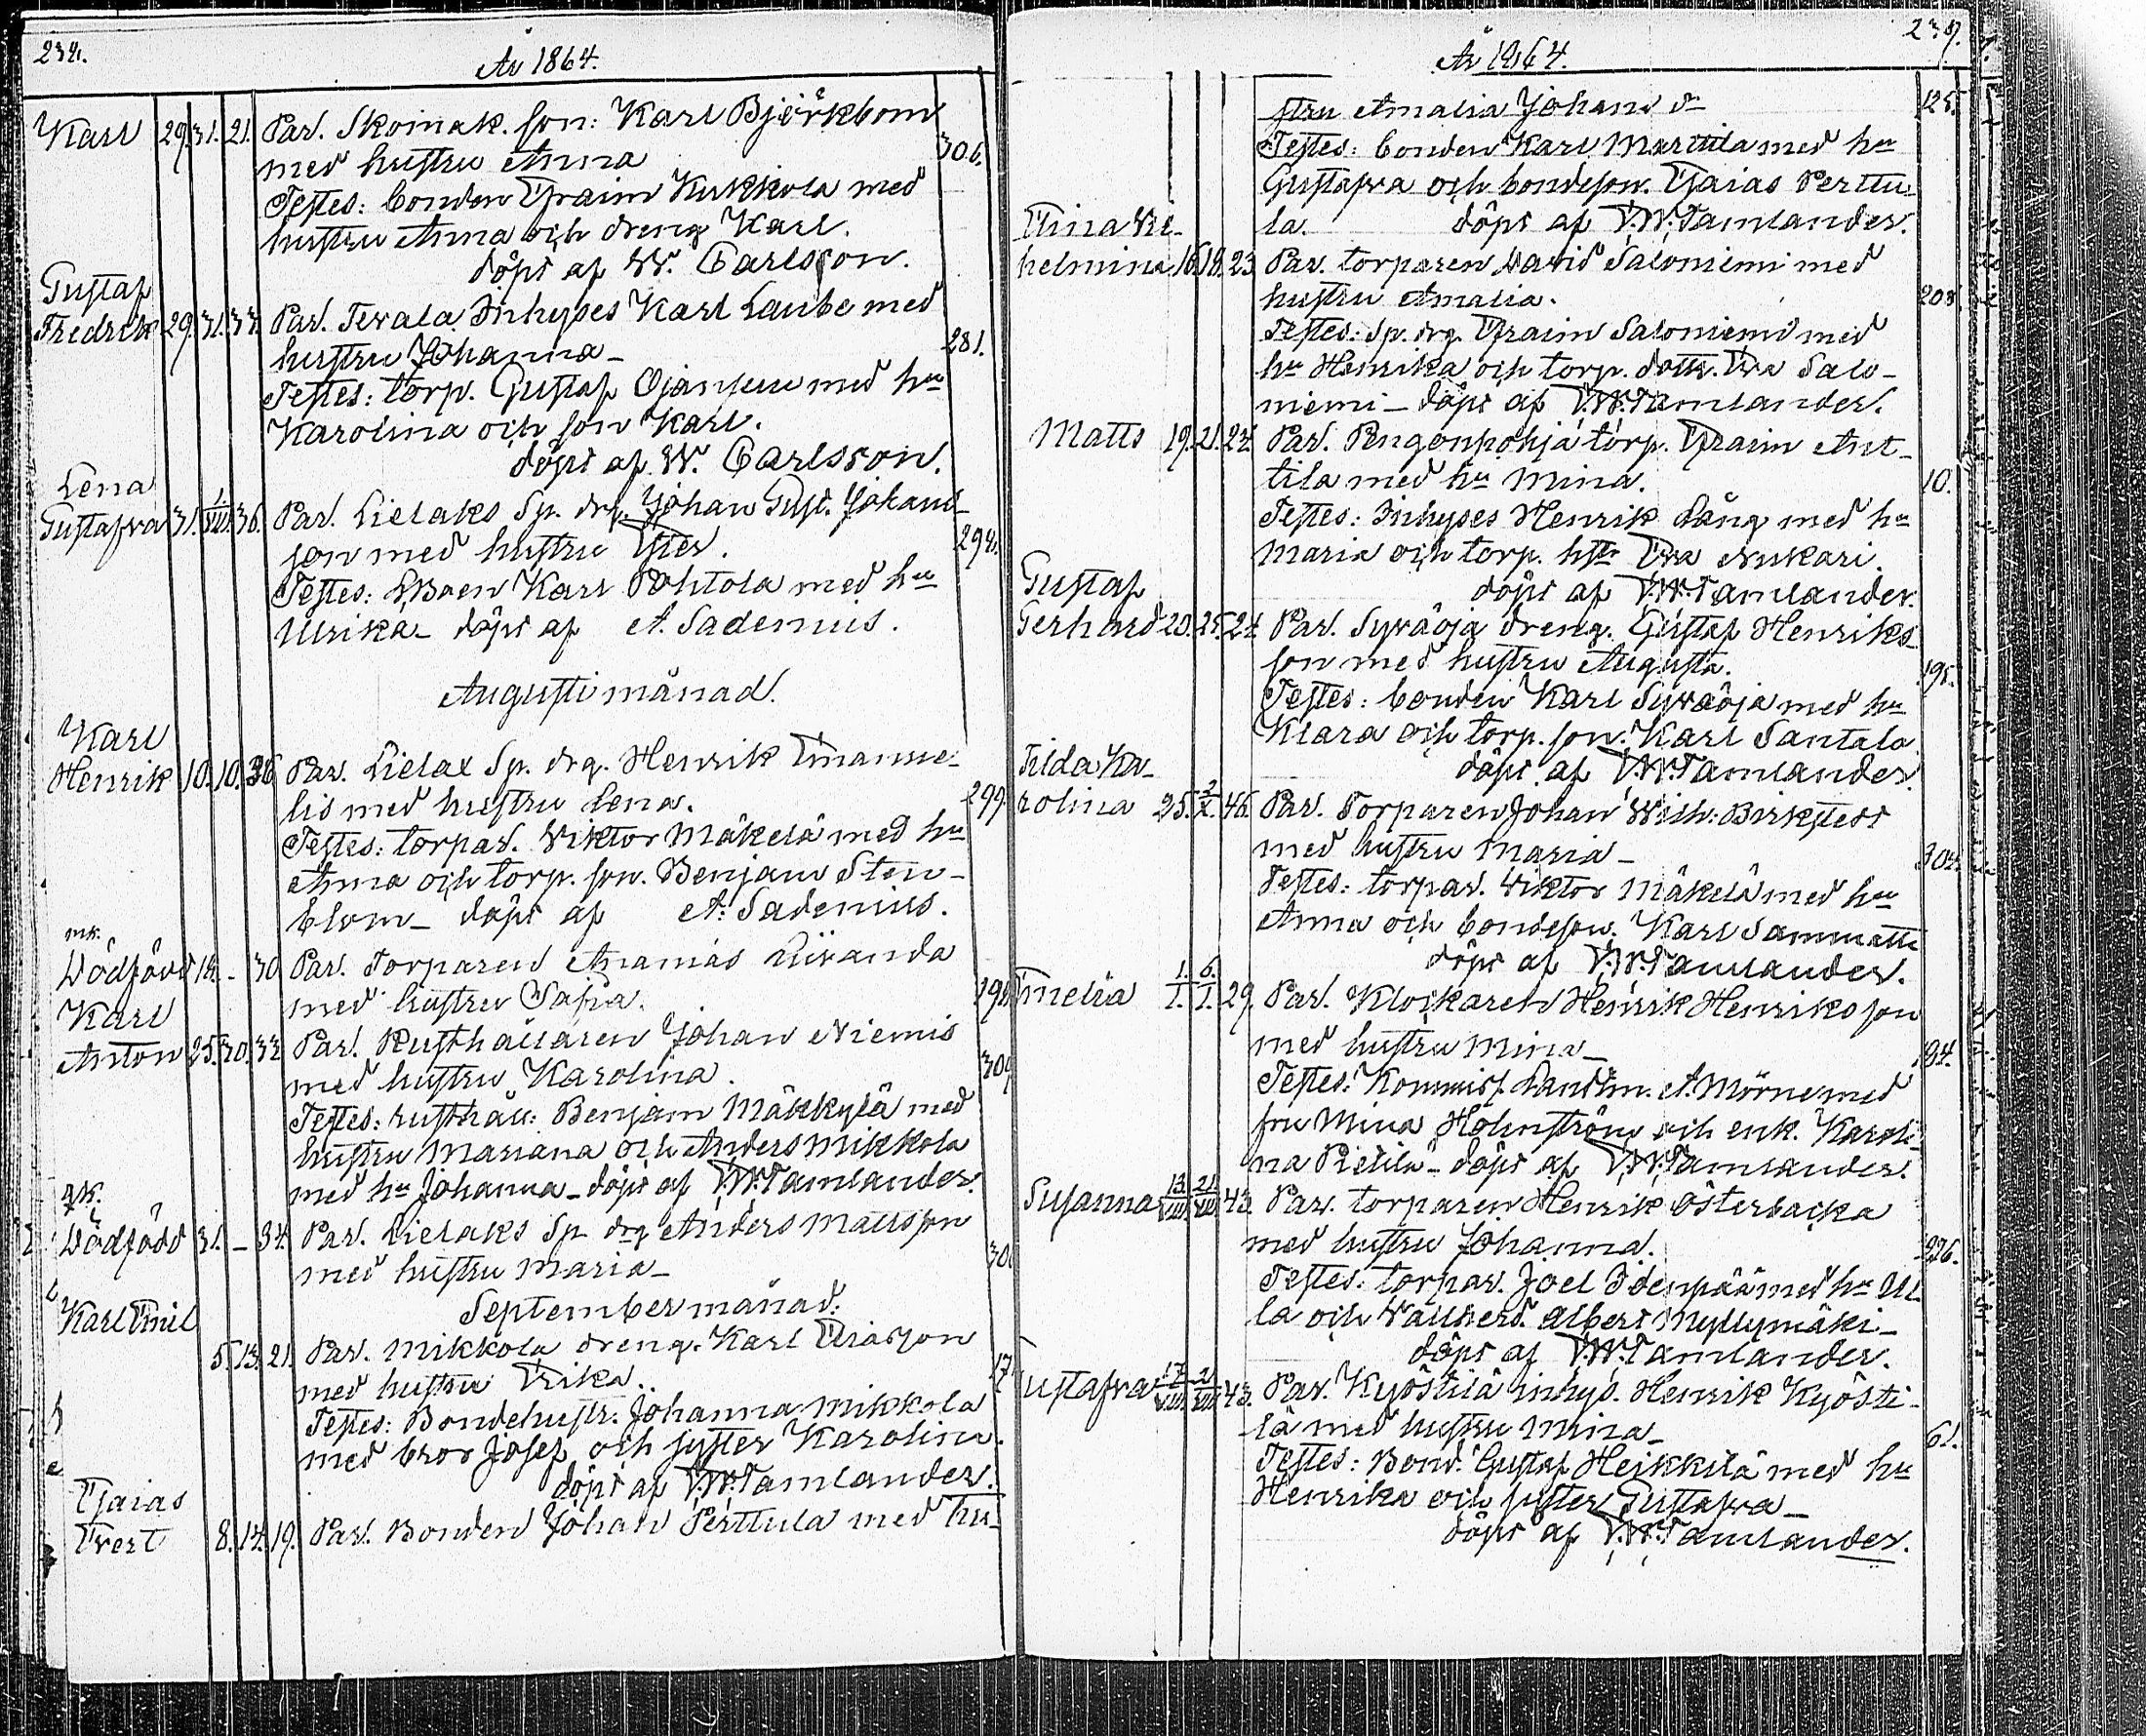 234.
År 1864.
Karl 29. 31. 21. Par. Skomak. son: Karl Björkbom
med hustru Anna 306.
Testes: bonden Efraim Kukkola med
hustru Anna och dreng Karl.
döpt af W. Carlsson.
Gustaf
Fredrik 29. 31. 33. Par. Tevala Inhyses Karl Laube med
hustru Johanna 281.
Testes: torp. Gustaf Ojansuu med hu
Karolina och son Karl.
döpt af W. Carlsson.
Lena
Gustafva 31. 1/VIII. 36. Par. Lielaks Sp. drg. Johan Gust. Johans-
son med hustru Ester. 294.
Testes: Karl Pohtola med hu
Ulrika - döpt af A. Sadenius.
Augusti månad.
Karl
Henrik 10. 10. 36 Par. Lielax Sp. drg. Henrik Emanue-
lis med hustru Lena. 299.
Testes: torpar. Viktor Mäkelä med hu
Anna och torp. son. Benjam Sten-
blom - döpt af A: Sadenius.
mk.
Dödfödd 14. - 30 Par. Torparen Ananias Liiranda
med hustru Safia. 198
Karl
Anton 25. 30. 33 Par. Rusthållaren Johan Niemis
med hustru Karolina. 309
Testes: rusthåll: Benjam Mäkkylä med
hustru Mariana och Anders Mikkola
med hu Johanna - döpt af F.W. Tamlander.
qk.
Dödfödd 31. - 34. Par. Lielaks Sp. drg Anders Mattsson
med hustru Maria - 300
September månad:
Karl Emil
5. 13. 21. Par. Mikkola dreng. Karl Eliasson
med hustru Erika. 17
Testes: Bondehustr. Johanna Mikkola
med bror Josef och syster Karolina.
döpt af F.W. Tamlander.
Esaias
Evert 8. 14. 19. Par. Bonden Johan Perttula med hu-
235.
År 1864.
stru Amalia Johans dr 125.
Testes: bonden Karl Marttila med hu
Gustafva och bondeson. Esaias Perttu-
la. döpt af F.W. Tamlander.
Eina Vil-
helmina 16. 18. 23 Par. torparen David Saloniemi med
hustru Amalia. 208.
Testes: Sp. drg. Efraim Saloniemi med
hu Henrika och torp. dottr. Eva Salo-
niemi - döpt af F.W. Tamlander.
Matts 19. 21. 24. Par. Pengonpohja torp. Efraim Ant-
tila med hu Mina. 10.
Testes: Inhyses Henrik Lång med hu
Maria och torp. hstr Eva Nukari.
döpt af F.W. Tamlander.
Gustaf
Gerhard 20. 25. 24. Par. Syväoja dreng. Gustaf Henriks-
son med hustru Augusta. 195.
Testes: bonden Karl Syväoja med hu
Klara och torp. son. Karl Santala
döpt af F.W. Tamlander.
Tilda Ka-
rolina 25. 2/X. 46. Par. Torparen Johan Wilh: Birkstedt
med hustru Maria - 302.
Testes: torpar. Viktor Mäkelä med hu
Anna och bondeson. Karl Sammatti
döpt af F.W. Tamlander.
Emelia 1./I. 6./I. 29. Par. Klockaren Henrik Henriksson
med hustru Mina - 194.
Testes: Kommiss. Landtm. A. Mörne med
fru Mina Holmström och enk. Karoli-
na Pietilä - döpt af F.W. Tamlander.
Susanna 13/VIII. 21/VIII. 43. Par. torparen Henrik Österbacka
med hustru Johanna. 226.
Testes: torpar. Joel Idenpää med hu Ul-
la och Albert Myllymäki -
döpt af F.W. Tamlander.
Gustafva 17/VIII. 21/VIII. 43. Par. Kyöstilä inhys. Henrik Kyösti-
lä med hustru Mina - 61.
Testes: Bond. Gustaf Heikkilä med hu
Henrika och syster Gustafva -
döpt af F.W. Tamlander.